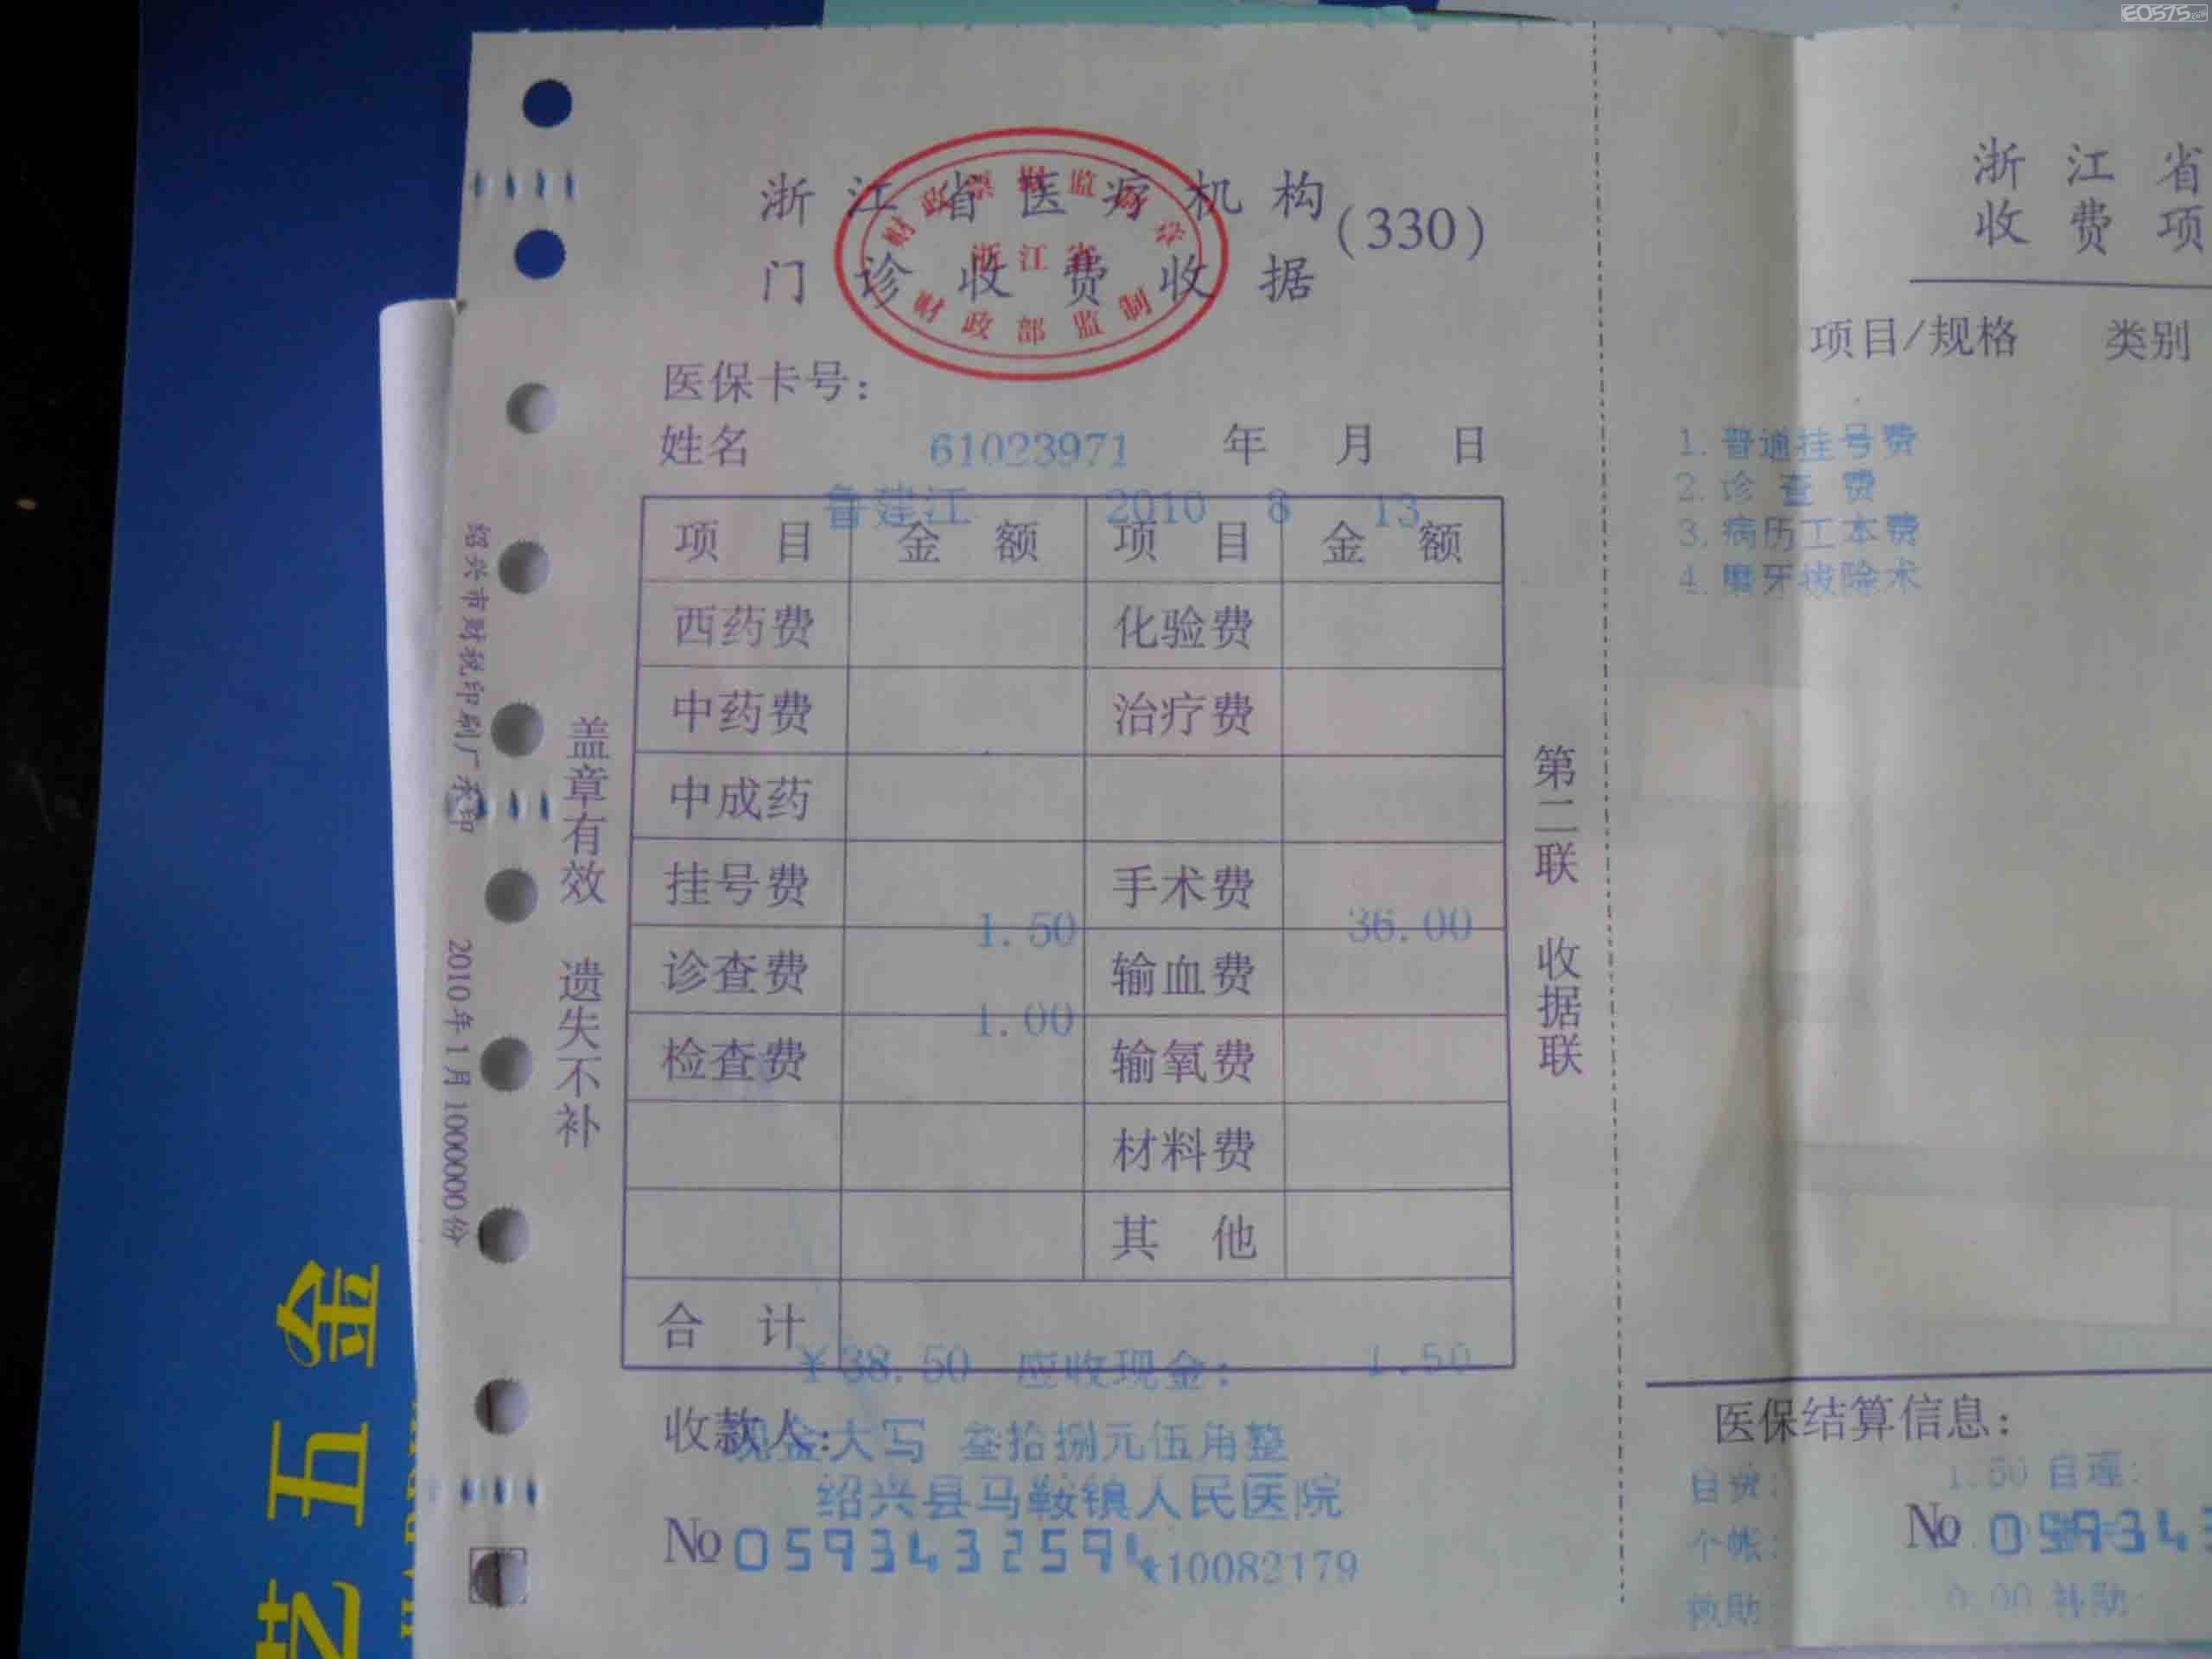 EO575.com
浙江省医疗机构
门诊收费收据
(330)
财政票据监
浙江省
财政部监制
医保卡号:
姓名 61023971 年 月 日
鲁建江 2010 8 13
项目 金额 项目 金额
西药费 化验费
中药费 治疗费
中成药
挂号费 手术费
1.50 36.00
诊查费 输血费
1.00
检查费 输氧费
材料费
其他
合计
¥38.50 应收现金: 1.50
收款人:
现金大写 叁拾捌元伍角整
绍兴县马鞍镇人民医院
No 0593432594
*10082179
盖章有效 遗失不补
绍兴市财税印刷厂承印 2010年1月1000000份
第二联 收据联
浙江省
收费项
项目/规格 类别
1. 普通挂号费
2. 诊查费
3. 病历工本费
4. 磨牙拔除术
医保结算信息:
自费: 1.50 自理:
No 059343
个帐:
救助 0.00 补助
艺五金